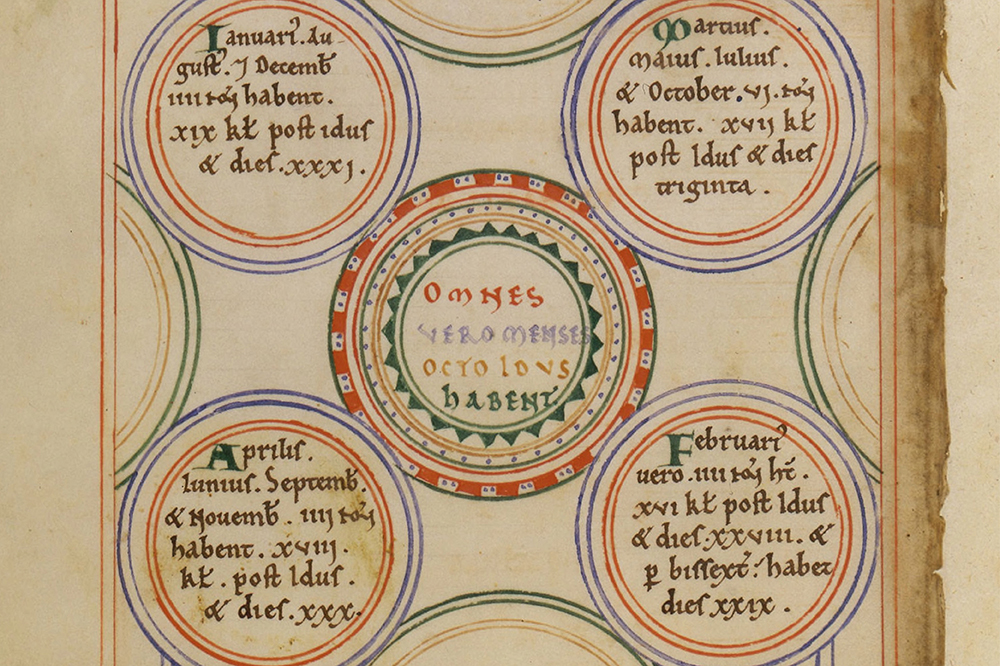 Ianuari᾽. Au-
gust᾽. ⁊ Decemb̄
iiii noñ habent.
xix kł post idus
& dies. xxxi.
Martius.
Maius. Iulius.
& October. vi. noñ
habent. xvii kł
post Idus & dies
triginta.
OMNES
VERO MENSES
OCTO IDVS
HABENT
Aprilis.
Iunius. Septemb̄.
& Novemb̄. iiii noñ
habent. xviii.
kł. post Idus.
& dies. xxx.
Februari᾽
vero. iiii noñ hr̄.
xvi kł post Idus
& dies. xxviii. &
ꝑ bissext᾽. habet
dies xxix.